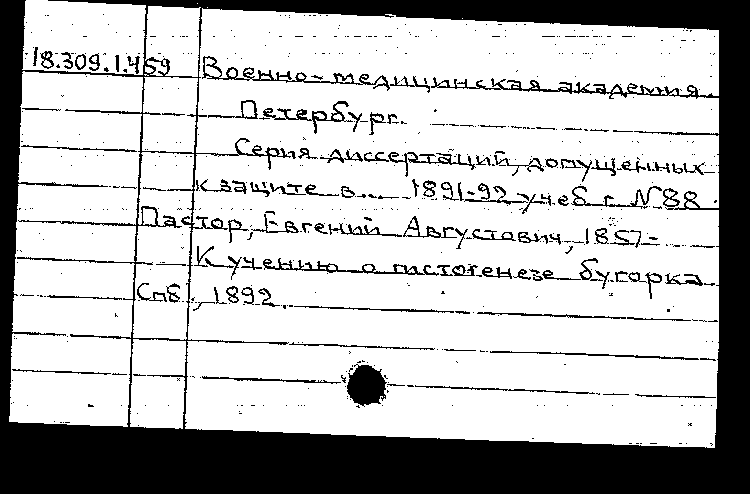 18.309.1.459 Военно-медицинская академия.
Петербург.
Серия диссертаций, допущенных
к защите в... 1891-92 учеб. г. N88.
Пастор, Евгений Августович, 1857-
К учению о гистогенезе бугорка.
Спб., 1892.